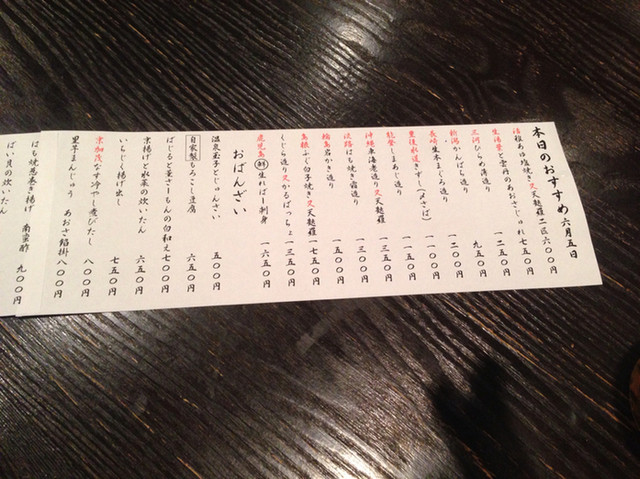 本日のおすすめ 六月五日
活稚あゆ塩焼き又天麩羅二匹 六〇〇円
生湯葉と雲丹のあおさじゅれ 七五〇円
一二五〇円
三河ひらめ薄造り 九五〇円
新潟かんぱち造り 一二〇〇円
長崎生本まぐろ造り 一一〇〇円
豊後水道さすし(〆さば) 一一〇〇円
能登しまあじ造り 一三五〇円
沖縄車海老造り又天麩羅 一三五〇円
淡路はも焼き霜造り 一五〇〇円
輪島岩かき造り 一五〇〇円
島根ふぐ白子焼き又天麩羅 一七五〇円
くじら造り又かるぱっちょ 一三五〇円
鹿児島鮮生ればー刺身 一六五〇円
おばんざい
温泉玉子とじゅんさい 五〇〇円
自家製もろこし豆腐 六五〇円
ばじると葉さーもんの白和え 七〇〇円
京揚げと水菜の炊いたん 六五〇円
いちじく揚げ出し 七五〇円
京加茂なす冷やし煮びたし 八〇〇円
里芋まんじゅう あおさ餡掛 八〇〇円
はも焼葱巻き揚げ 南蛮酢 九〇〇円
ばい貝の炊いたん